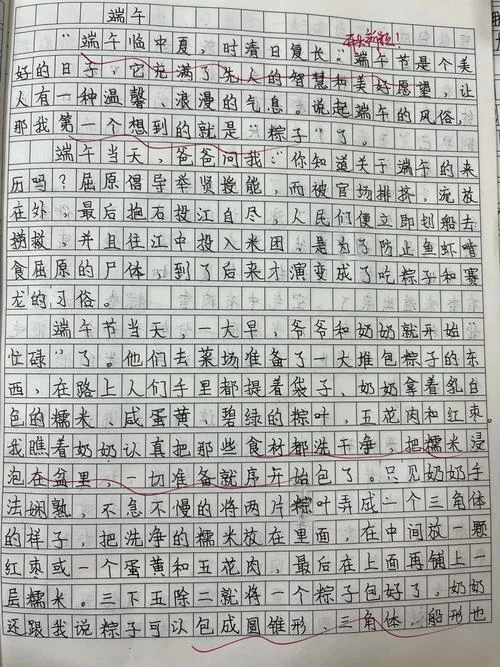 端午
"端午临中夏，时清日复长。"端午节是个美
好的日子，它充满了先人的智慧和美好愿望，让
人有一种温馨、浪漫的气息。说起端午的风俗，
那我第一个想到的就是"粽子"了。
端午当天，爸爸问我："你知道关于端午的来
历吗？屈原倡导举贤授能，而被官场排挤，流放
在外，最后抱石投江自尽，人民们便立即划船去
捞救，并且往江中投入米团，是为了防止鱼虾啃
食屈原的尸体，到了后来才演变成了吃粽子和赛
龙的习俗。
端午节当天，一大早，爷爷和奶奶就开始"
忙碌"了。他们去菜场准备了一大堆包粽子的东
西，在路上人们手里都提着袋子，奶奶拿着乳白
色的糯米、咸蛋黄、碧绿的粽叶，五花肉和红枣。
我瞧着奶奶认真把那些食材都洗干净，把糯米浸
泡在盆里，一切准备就序开始包了。只见奶奶手
法娴熟，不急不慢的将两片粽叶弄成一个三角体
的样子，把洗净的糯米放在里面，在中间放一颗
红枣或一个蛋黄和五花肉，最后在上面再铺上一
层糯米。三下五除二就将一个粽子包好了。奶奶
还跟我说粽子可以包成圆锥形，三角体，船形也